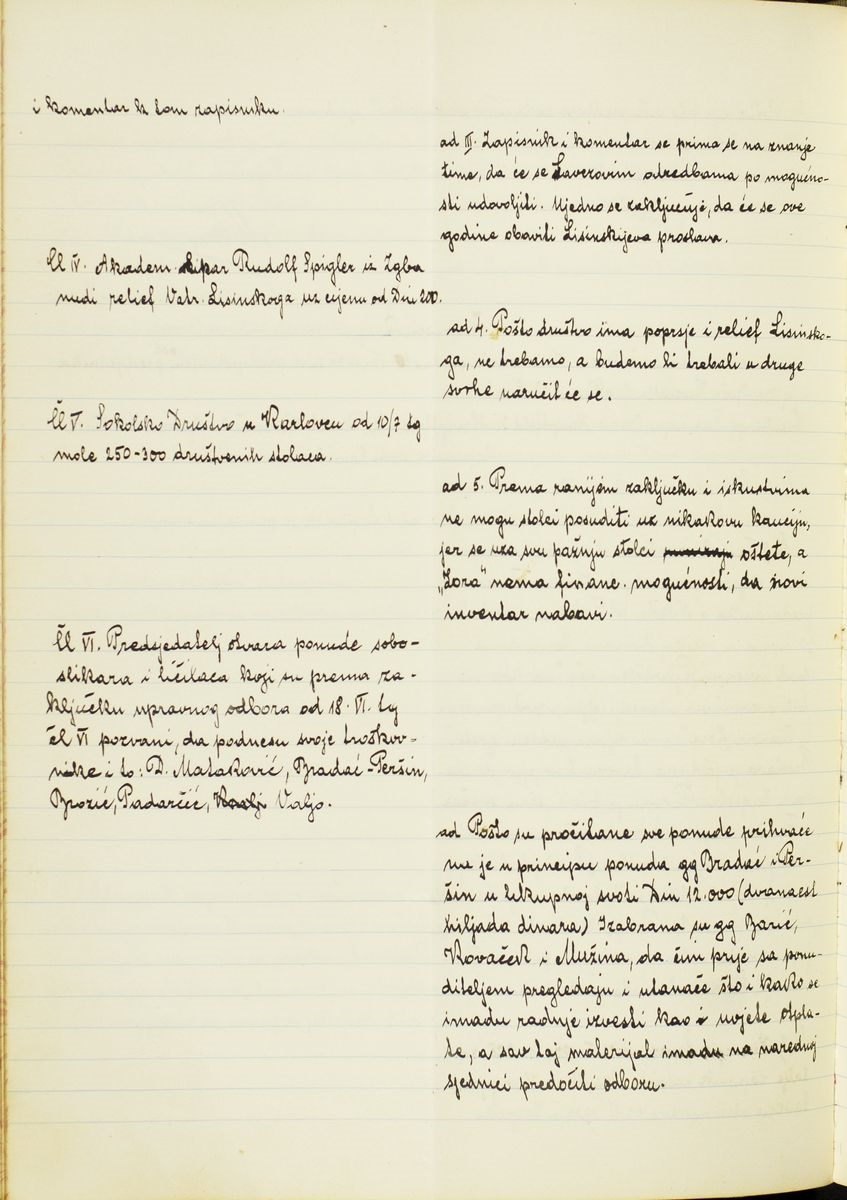 i komentar k tom zapisniku.
ad III. Zapisnik i komentar se prima se na znanje
time, da će se Saverovim odredbama po mogućno-
sti udovoljiti. Ujedno se zaključuje, da će se ove
godine obaviti Lisinskijeva proslava.
Čl IV. Akadem kipar Rudolf Spigler iz Zgba
nudi relief Vatr. Lisinskoga uz cijenu od Din 200.
ad 4. Pošto društvo ima poprsje i relief Lisinsko-
ga, ne trebamo, a budemo li trebali u druge
svrhe naručit će se.
Čl V. Sokolsko Društvo u Karlovcu od 10/7 tg
mole 250-300 društvenih stolaca.
ad 5. Prema ranijem zaključku i iskustvima
ne mogu stolci posuditi uz nikakovu kauciju,
jer se uza svu pažnju stolci oštete, a
„Zora" nema financ. mogućnosti, da novi
inventar nabavi.
Čl VI. Predsjedatelj otvara ponude sobo-
slikara i ličilaca koji su prema za-
ključku upravnog odbora od 18. VI. tg
čl VI pozvani, da podnesu svoje troškov-
nike i to: D. Mataković, Bradać-Peršin,
Brozić, Padarčić, Valjo.
ad Pošto su pročitane sve ponude prihvaće
na je u principu ponuda gg Bradać i Per-
šin u ukupnoj svoti Din 12.000 (dvanaest
hiljada dinara) Izabrana su gg Barić,
Kovaček i Mužina, da čim prije sa ponu-
diteljem pregledaju i utanače što i kako se
imadu radnje izvesti kao i uvjete otpla-
te, a sav taj materijal imadu na narednoj
sjednici predočiti odboru.